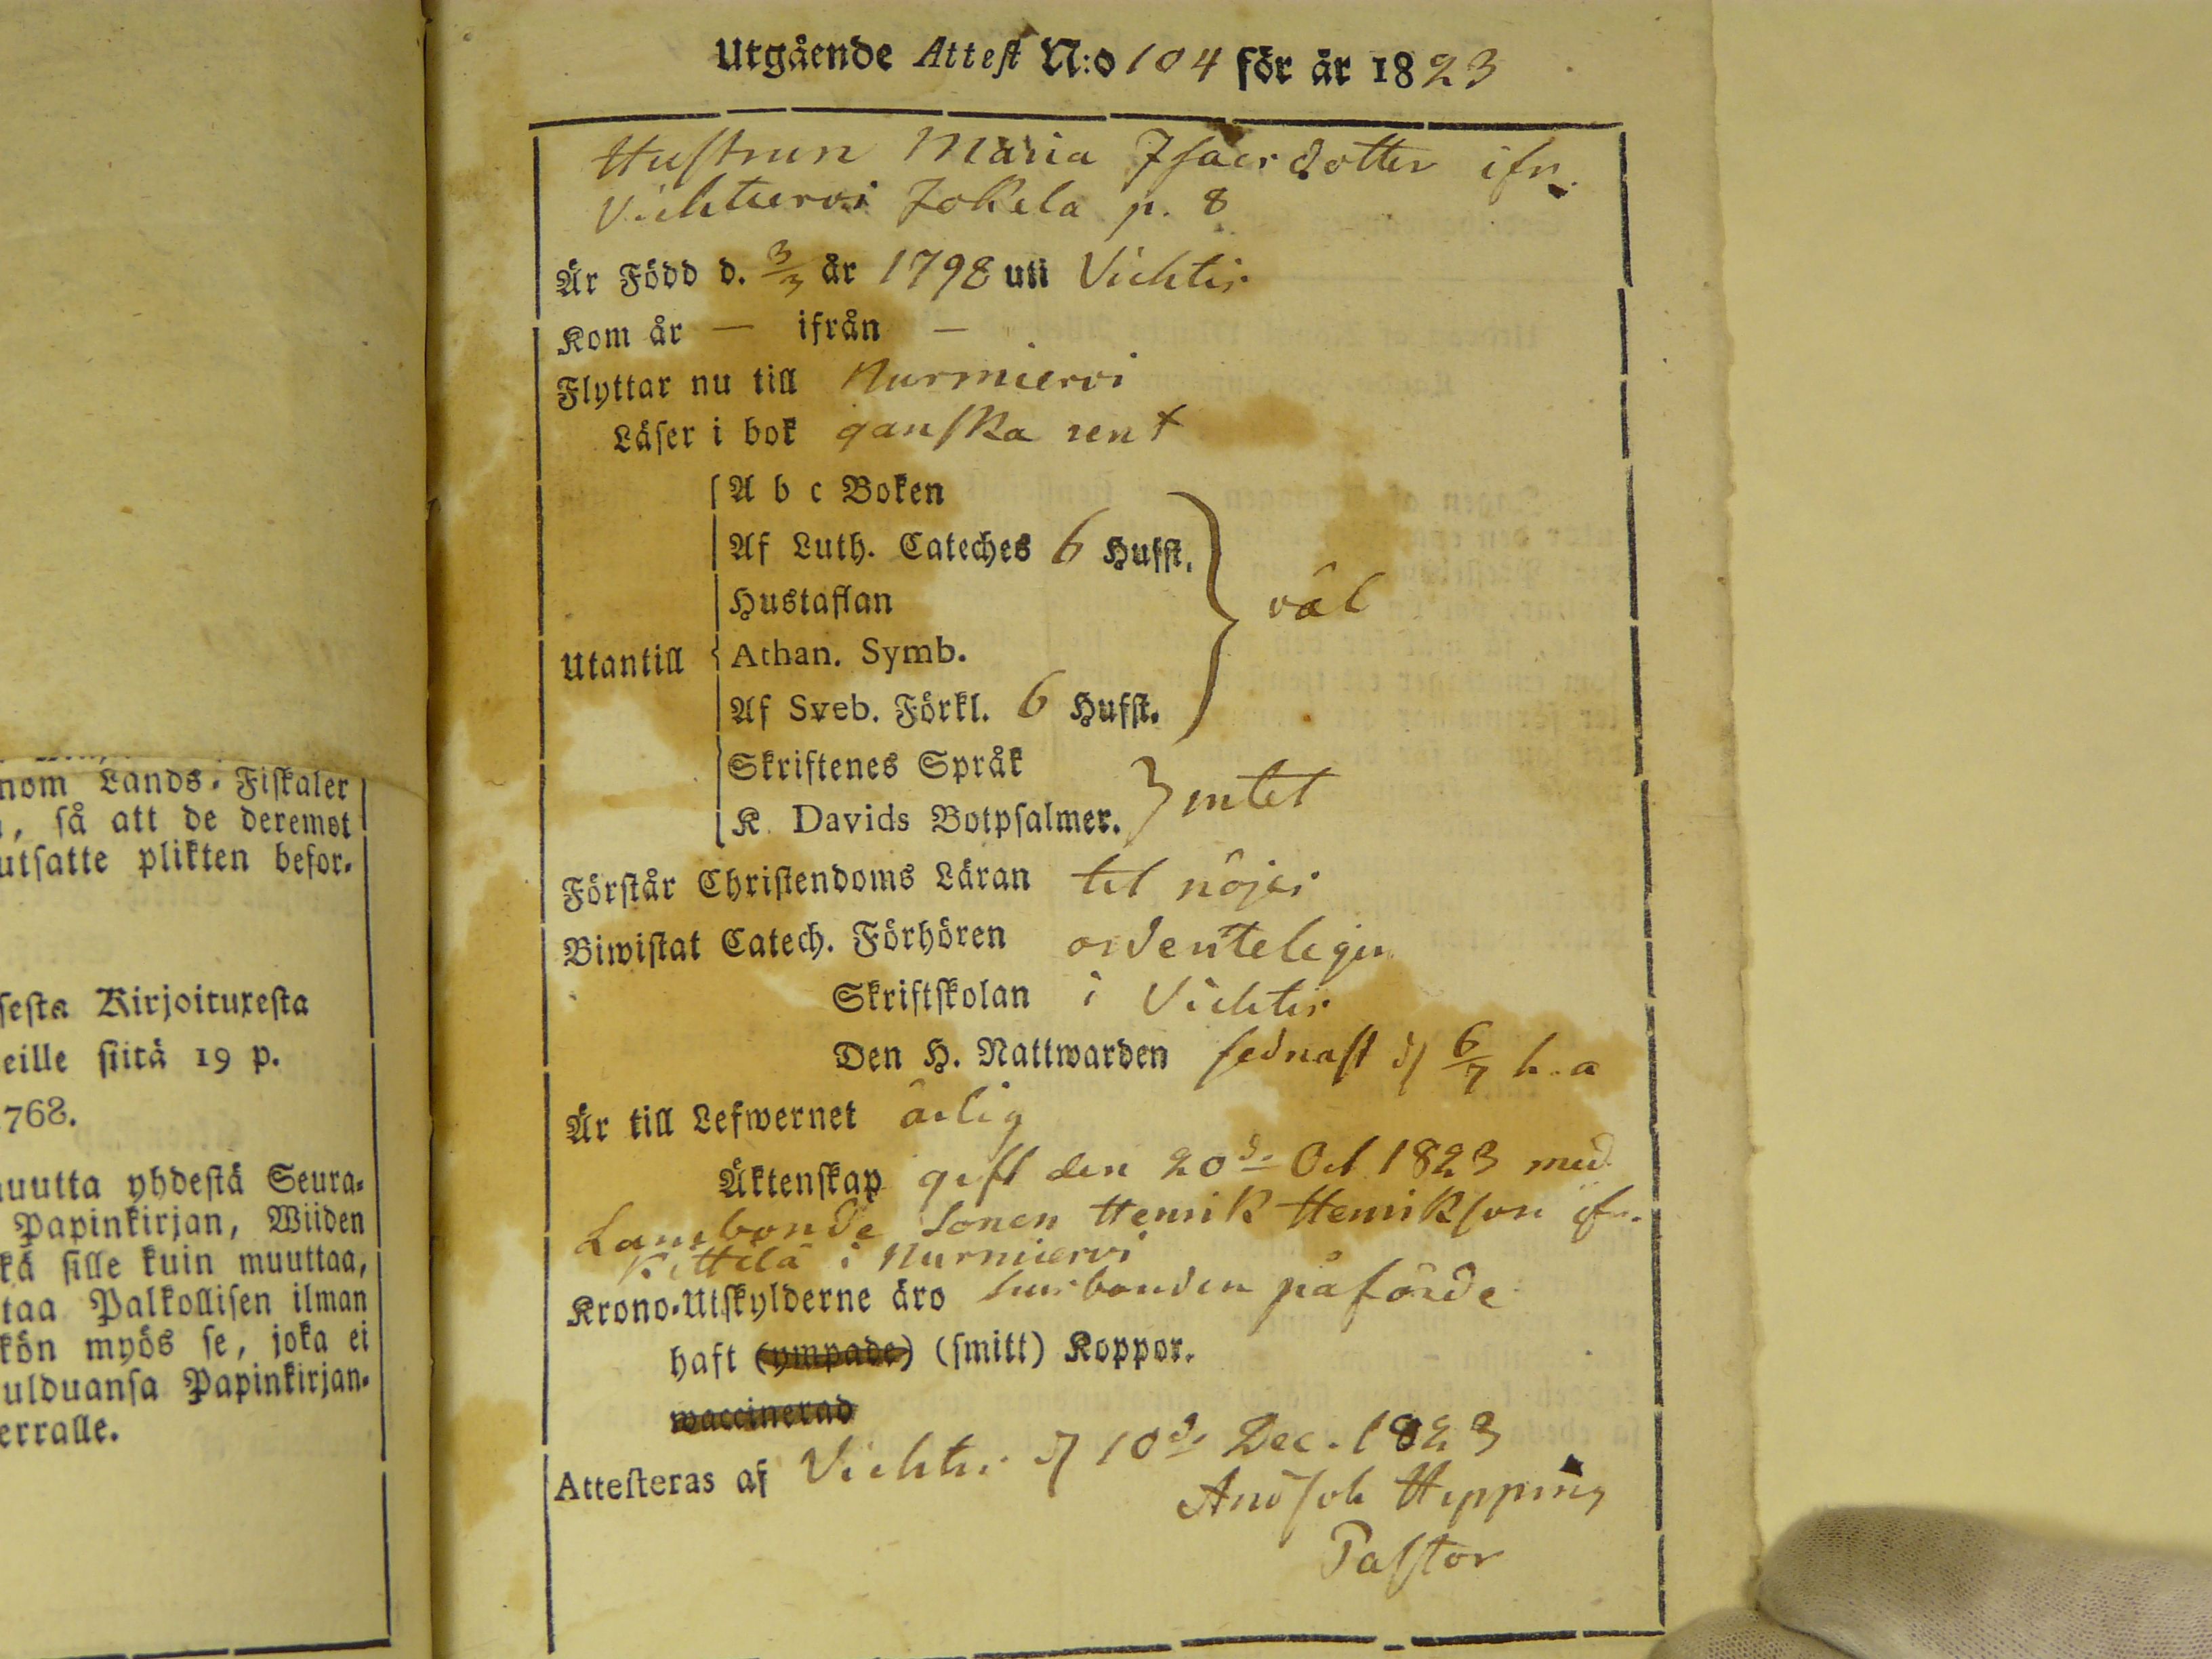 nom Lands-Fiſkaler
, ſå att de deremot
utſatte plikten befor-
ſeſta Kirjoituxeſta
eille ſiitä 19 p.
768.
uutta yhdeſtä Seura-
Papinkirjan, Wiiden
kä ſille kuin muuttaa,
taa Palkolliſen ilman
kön myös ſe, joka ei
ulduanſa Papinkirjan-
erralle.
Utgående Atteſt N:o 104 för år 1823
Huſtrun Maria Iſacs dotter ifn.
Vichtiervi Jokela p. 8
Är Född d. 3/3 år 1798 uti Vichtis
Kom år — ifrån —
Flyttar nu till Nurmiervi
Läſer i bok ganſka rent
A b c Boken
Af Luth. Cateches 6 Hufſt.
Hustaflan
väl
Utantill Athan. Symb.
Af Sveb. Förkl. 6 Hufſt.
Skriftenes Språk
K. Davids Botpſalmer. intet
Förſtår Chriſtendoms Läran til nöjes
Biwiſtat Catech. Förhören ordenteligen
Skriftſkolan i Vichtis
Den H. Nattwarden ſednaſt d 6/7 h. a
Är till Lefwernet ärlig
Äktenſkap gift den 20d. Oct 1823 med
bonde Sonen Henrik Henrikſon ifr.
Kittelä i Nurmiervi
Krono-Utſkylderne äro husbonden påförde
haft (ympade) (ſmitt) Koppor.
waccinerad
Atteſteras af Vichtis d 10d. Dec. 1823
And Joh Hipping
Paſtor